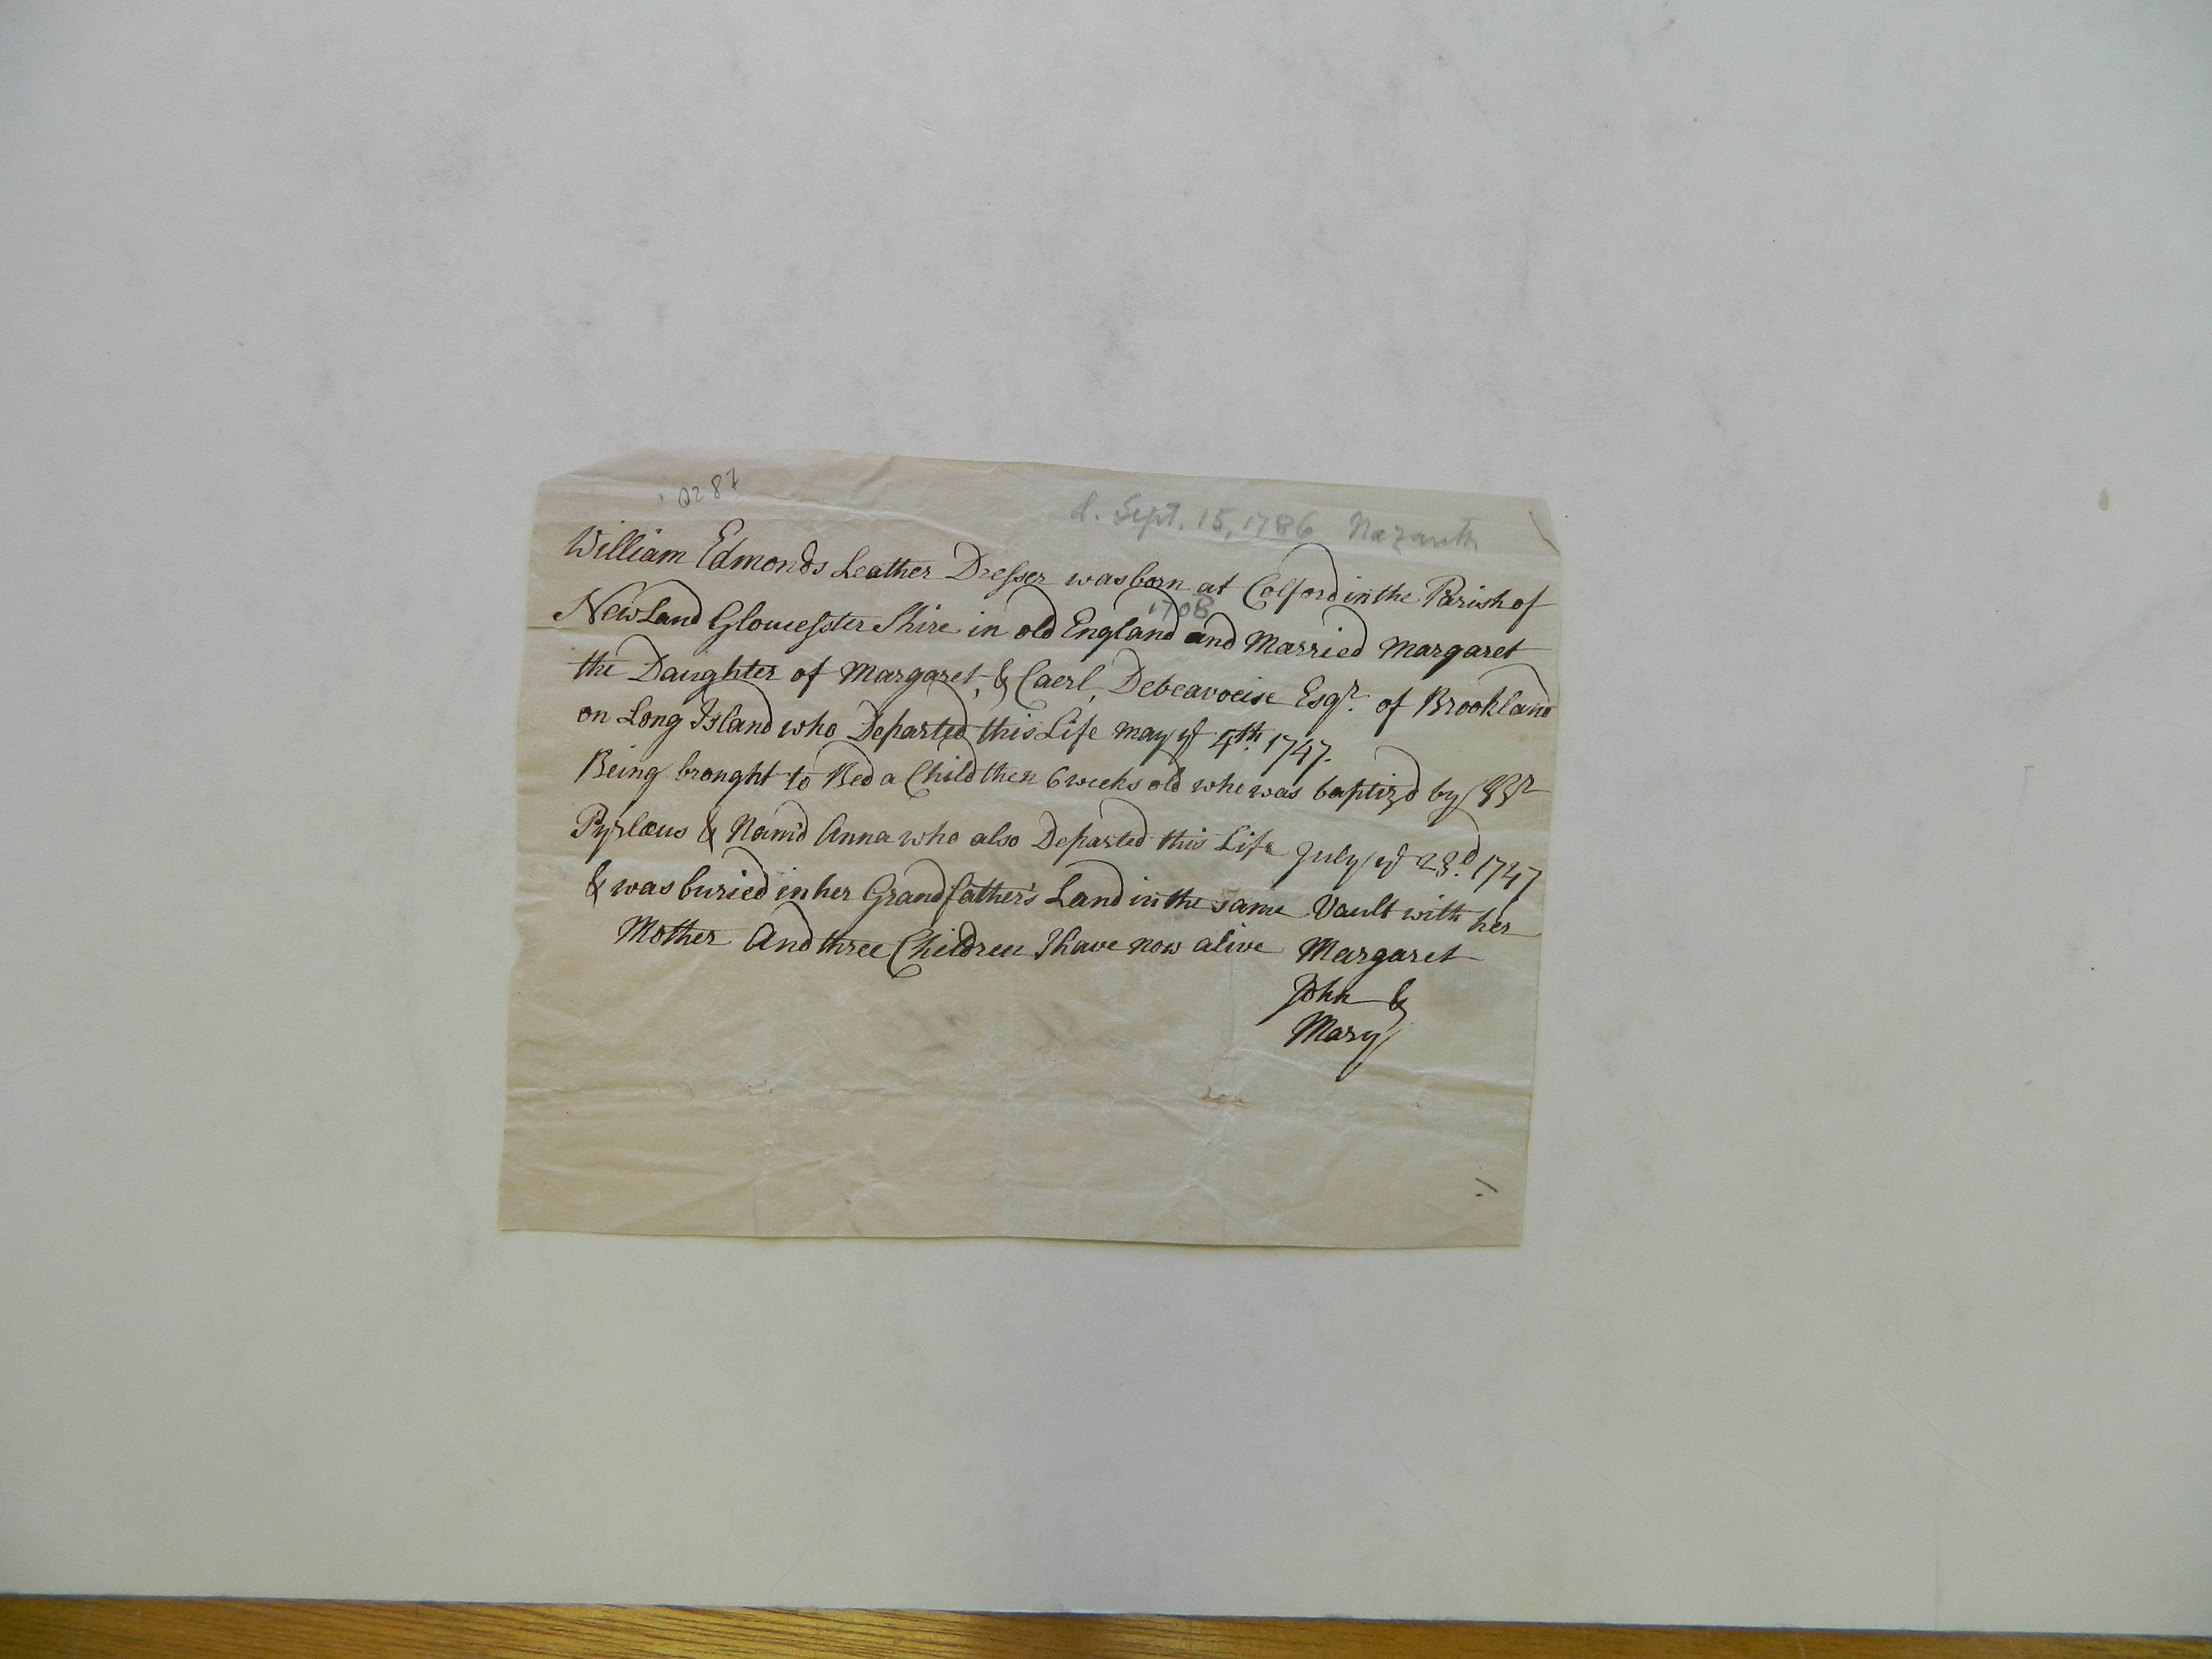 2287
d. Sept. 15, 1786 Nazareth
William Edmonds Leather Dresser was born at Colford in the Parish of
1708
New Land Gloucesster Shire in old England and Married Margaret
the Daughter of Margaret, & Caerl, Debeavoeise Esqr. of Brookland
on Long Island who Departed this Life may ye 4th 1747.
Being brought to Bed a Child then 6 weeks old who was baptizd by Br
Pyrlæus & Nam'd Anna who also Departed this Life July ye 23d. 1747
& was buried in her Grandfather's Land in the same Vault with her
Mother And three Children I have now alive Margaret
John &
Mary